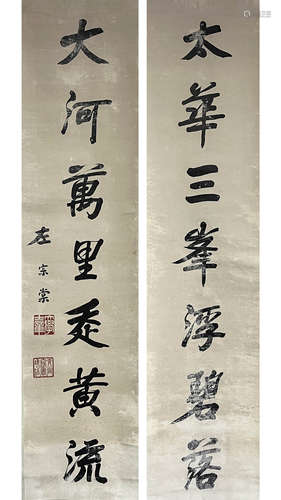 太華三峯浮碧落
大河萬里㐬黄流
左宗棠